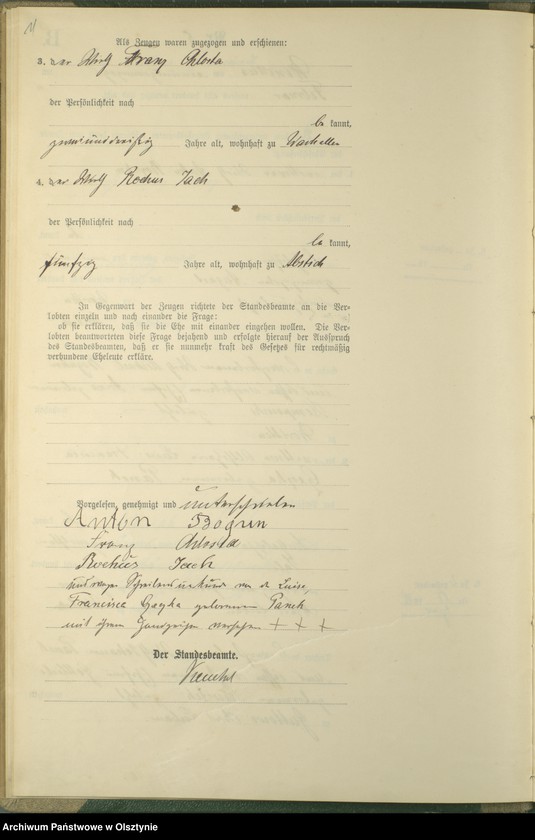 11
Als Zeugen waren zugezogen und erschienen:
3. der Wirth Franz Chlosta
der Persönlichkeit nach
be kannt,
zweiunddreißig Jahre alt, wohnhaft zu
4. der Wirth Rochus Jach
der Persönlichkeit nach
be kannt,
fünfzig Jahre alt, wohnhaft zu Abstich
In Gegenwart der Zeugen richtete der Standesbeamte an die Ver-
lobten einzeln und nach einander die Frage:
ob sie erklären, daß sie die Ehe mit einander eingehen wollen. Die Ver-
lobten beantworteten diese Frage bejahend und erfolgte hierauf der Ausspruch
des Standesbeamten, daß er sie nunmehr kraft des Gesetzes für rechtmäßig
verbundene Eheleute erkläre.
Vorgelesen, genehmigt und unterschrieben
Anton
Franz Chlosta
Rochus Jach
und wegen Schreibensunkunde von de Luise,
Francisca Gayka geborenen Panek
mit ihrem Handzeichen versehen + + +
Der Standesbeamte.
Archiwum Państwowe w Olsztynie